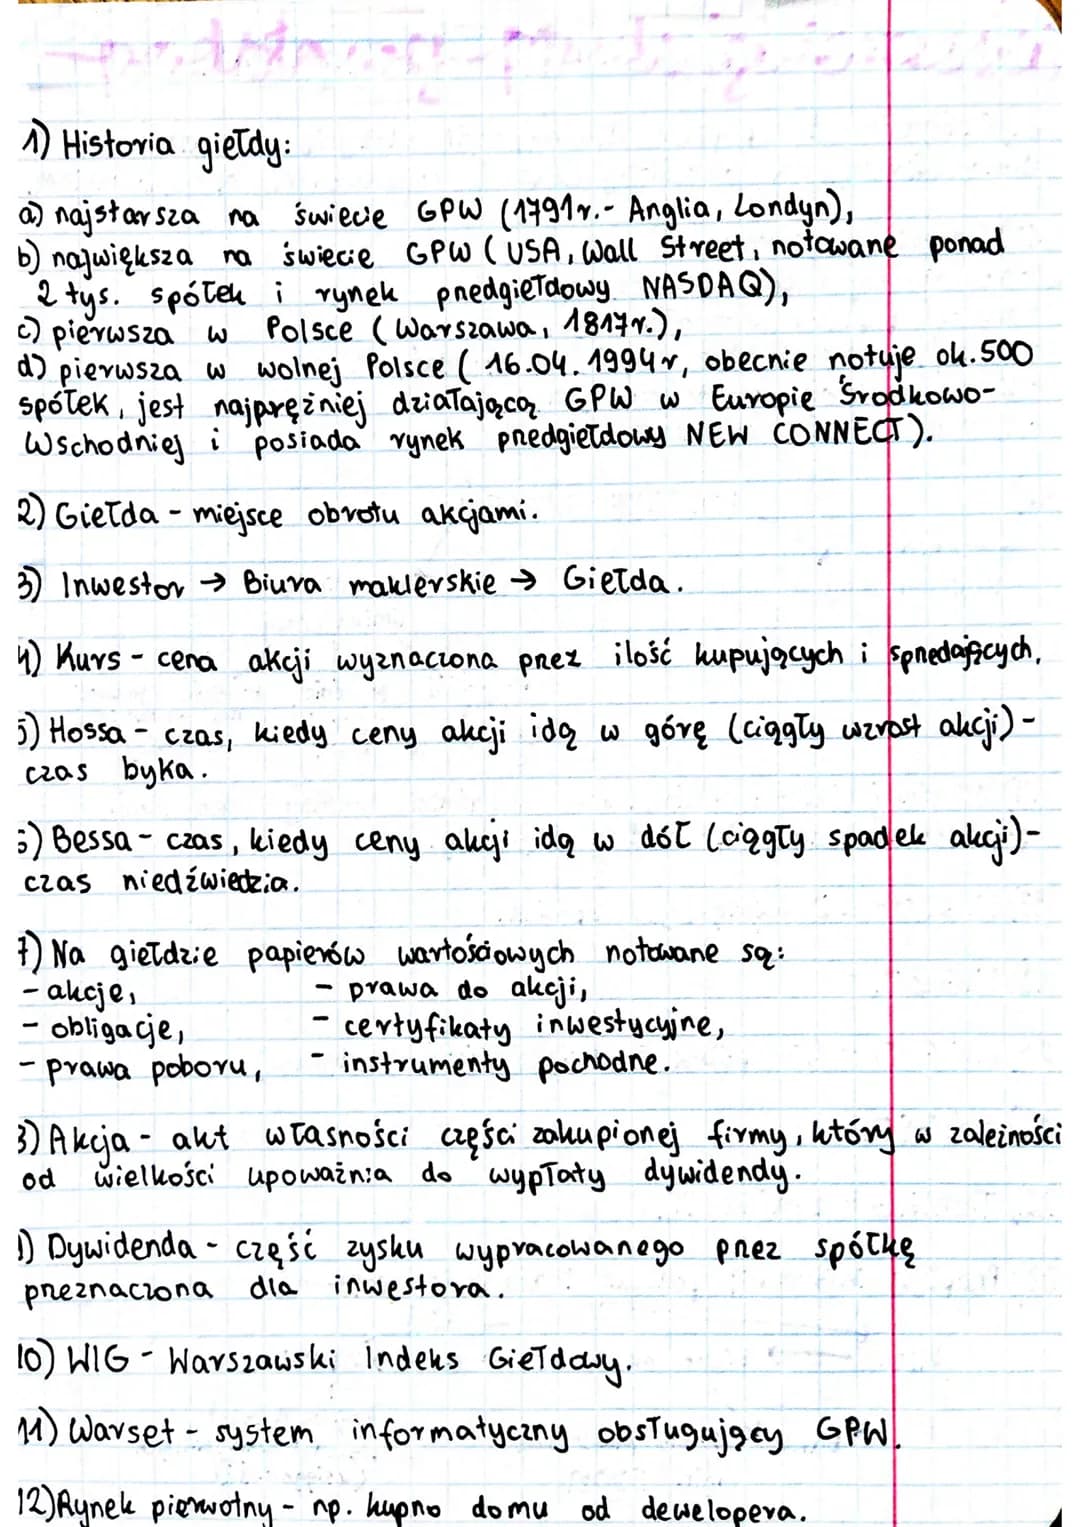 1) Historia giełdy:
a) najstarsza na świecie GPW (1791r.- Anglia, Londyn),
b) największa na świecie GPW (USA, Wall Street, notowane ponad
2 tys. spółek i rynek przedgiełdowy NASDAQ),
c) pierwsza w Polsce (Warszawa, 1817r.),
d) pierwsza w wolnej Polsce (16.04.1994r, obecnie notuje ok.500
spółek, jest najprężniej działającą GPW w Europie Środkowo-
Wschodniej i posiada rynek przedgiełdowy NEW CONNECT).
2) Giełda - miejsce obrotu akcjami.
3) Inwestor → Biura maklerskie → Giełda.
4) Kurs - cena akcji wyznaczona przez ilość kupujących i sprzedających.
5) Hossa - czas, kiedy ceny akcji idą w górę (ciągły wzrost akcji) -
czas byka.
6) Bessa - czas, kiedy ceny akcji idą w dół (ciągły spadek akcji)-
czas niedźwiedzia.
7) Na giełdzie papierów wartościowych notowane są:
- akcje, - prawa do akcji,
- obligacje, - certyfikaty inwestycyjne,
- prawa poboru, - instrumenty pochodne.
8) Akcja - akt własności części zakupionej firmy, który w zależności
od wielkości upoważnia do wypłaty dywidendy.
9) Dywidenda - część zysku wypracowanego przez spółkę
przeznaczona dla inwestora.
10) WIG - Warszawski Indeks Giełdowy.
11) Warset - system informatyczny obsługujący GPW.
12) Rynek pierwotny - np. kupno domu od dewelopera.